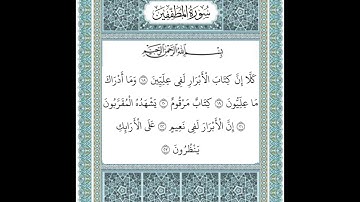 سُورَةُ المُطَفِّفِينَ
بِسْمِ اللَّهِ الرَّحْمَٰنِ الرَّحِيمِ
كَلَّا إِنَّ كِتَابَ الْأَبْرَارِ لَفِي عِلِّيِّينَ ١٨ وَمَا أَدْرَاكَ
مَا عِلِّيُّونَ ١٩ كِتَابٌ مَرْقُومٌ ٢٠ يَشْهَدُهُ الْمُقَرَّبُونَ
٢١ إِنَّ الْأَبْرَارَ لَفِي نَعِيمٍ ٢٢ عَلَى الْأَرَائِكِ
يَنْظُرُونَ ٢٣